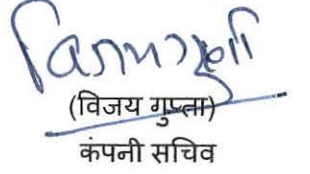 (विजय गुप्ता)
कंपनी सचिव